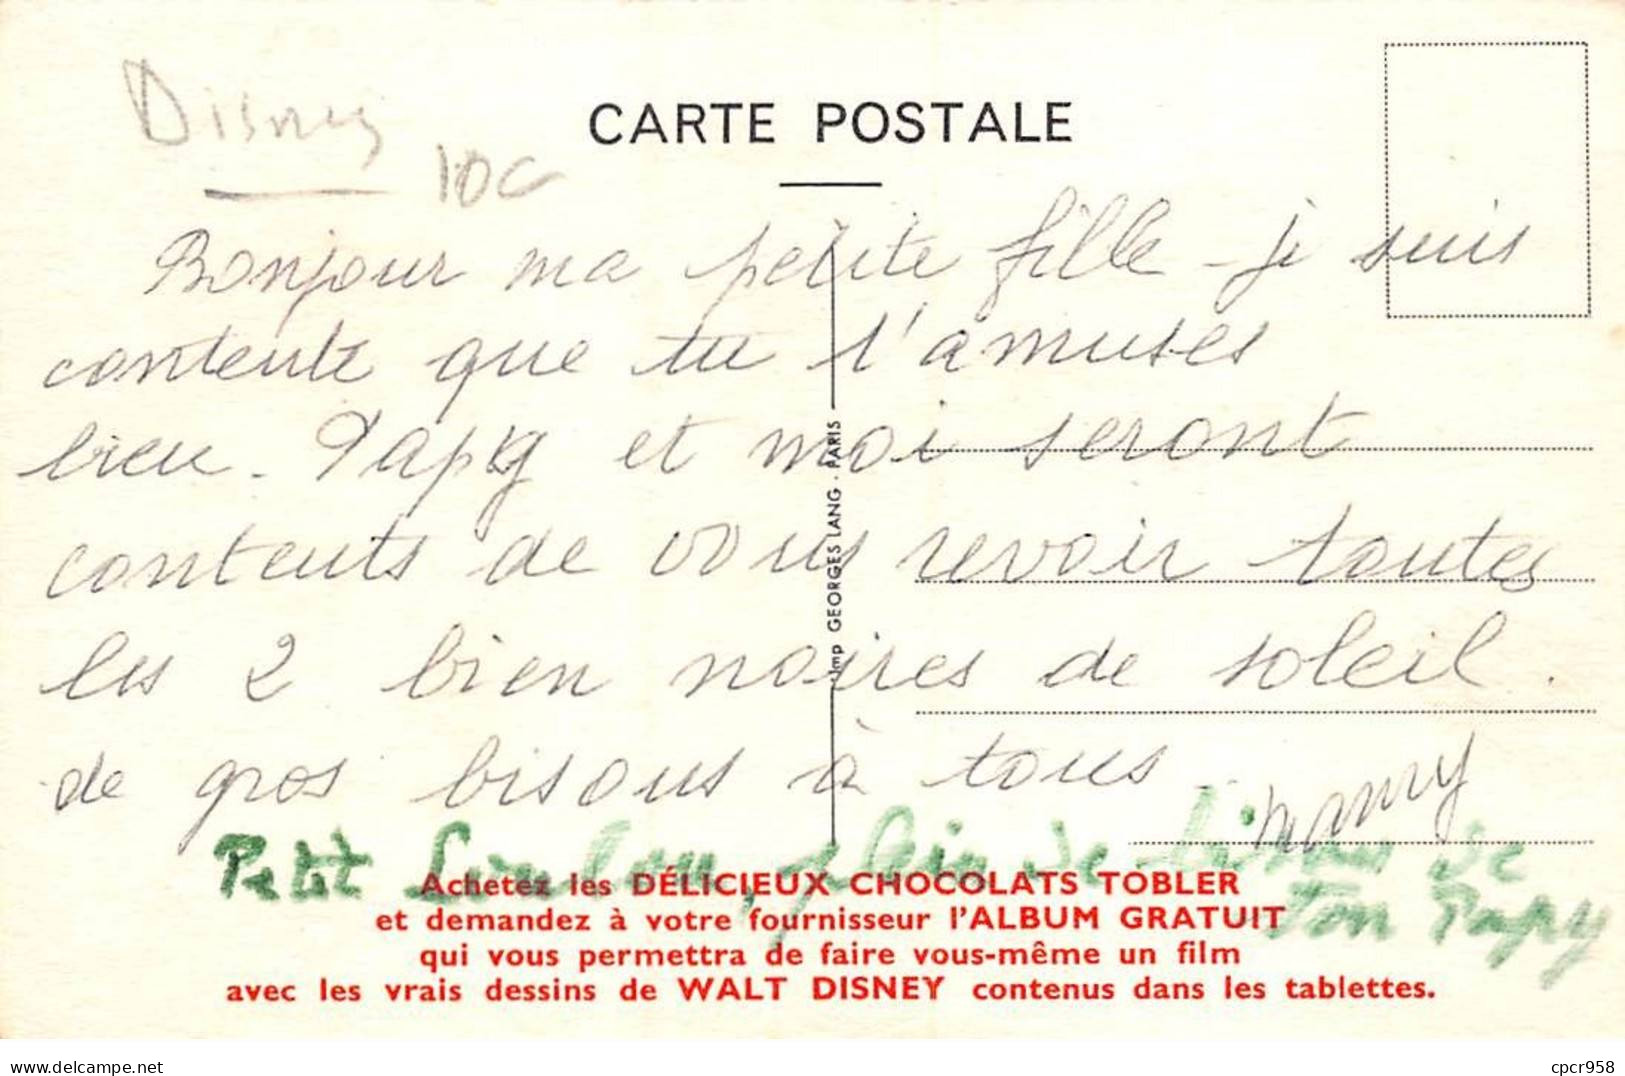 Disney
10C
CARTE POSTALE
Bonjour ma petite fille - je suis
contente que tu t'amuses
bien - Papy et moi seront
contents de vous revoir toutes
les 2 bien noires de soleil.
de gros bisous à tous
mamy
Petit Loulou, plein de bisous de
ton Papy
Imp GEORGES LANG - PARIS
Achetez les DÉLICIEUX CHOCOLATS TOBLER
et demandez à votre fournisseur l'ALBUM GRATUIT
qui vous permettra de faire vous-même un film
avec les vrais dessins de WALT DISNEY contenus dans les tablettes.
www.delcampe.net
cpcr958